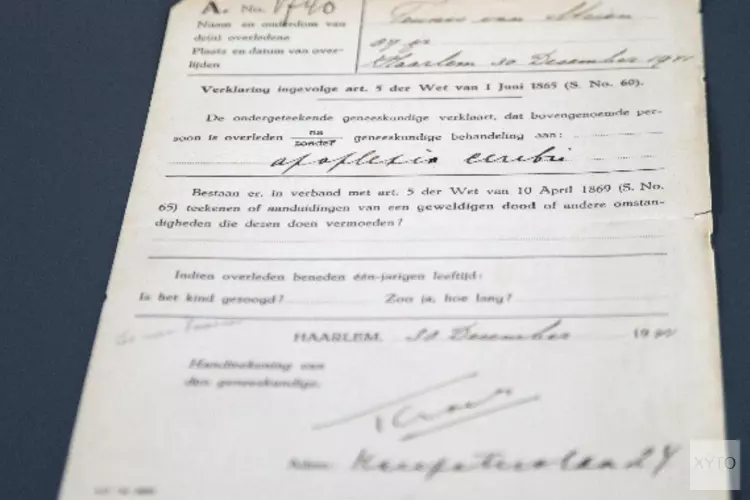 A. No. 1740
Naam en ouderdom van
de(n) overledene
Plaats en datum van over-
lijden
Haarlem 30 December 19
Verklaring ingevolge art. 5 der Wet van 1 Juni 1865 (S. No. 60).
De ondergeteekende geneeskundige verklaart, dat bovengenoemde per-
soon is overleden na
zonder geneeskundige behandeling aan:
apoplexia cerebri
Bestaan er, in verband met art. 5 der Wet van 10 April 1869 (S. No.
65) teekenen of aanduidingen van een geweldigen dood of andere omstan-
digheden die dezen doen vermoeden?
Indien overleden beneden één-jarigen leeftijd:
Is het kind gezoogd? Zoo ja, hoe lang?
HAARLEM, 30 December 19
Handteekening van
den geneeskundige.
XYTO